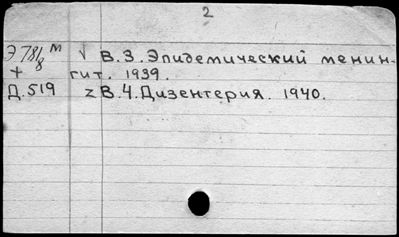 2
Э 781/8 м √ В.3. Эпидемический менин-
+ гит. 1939.
Д.519 z В.4. Дизентерия. 1940.